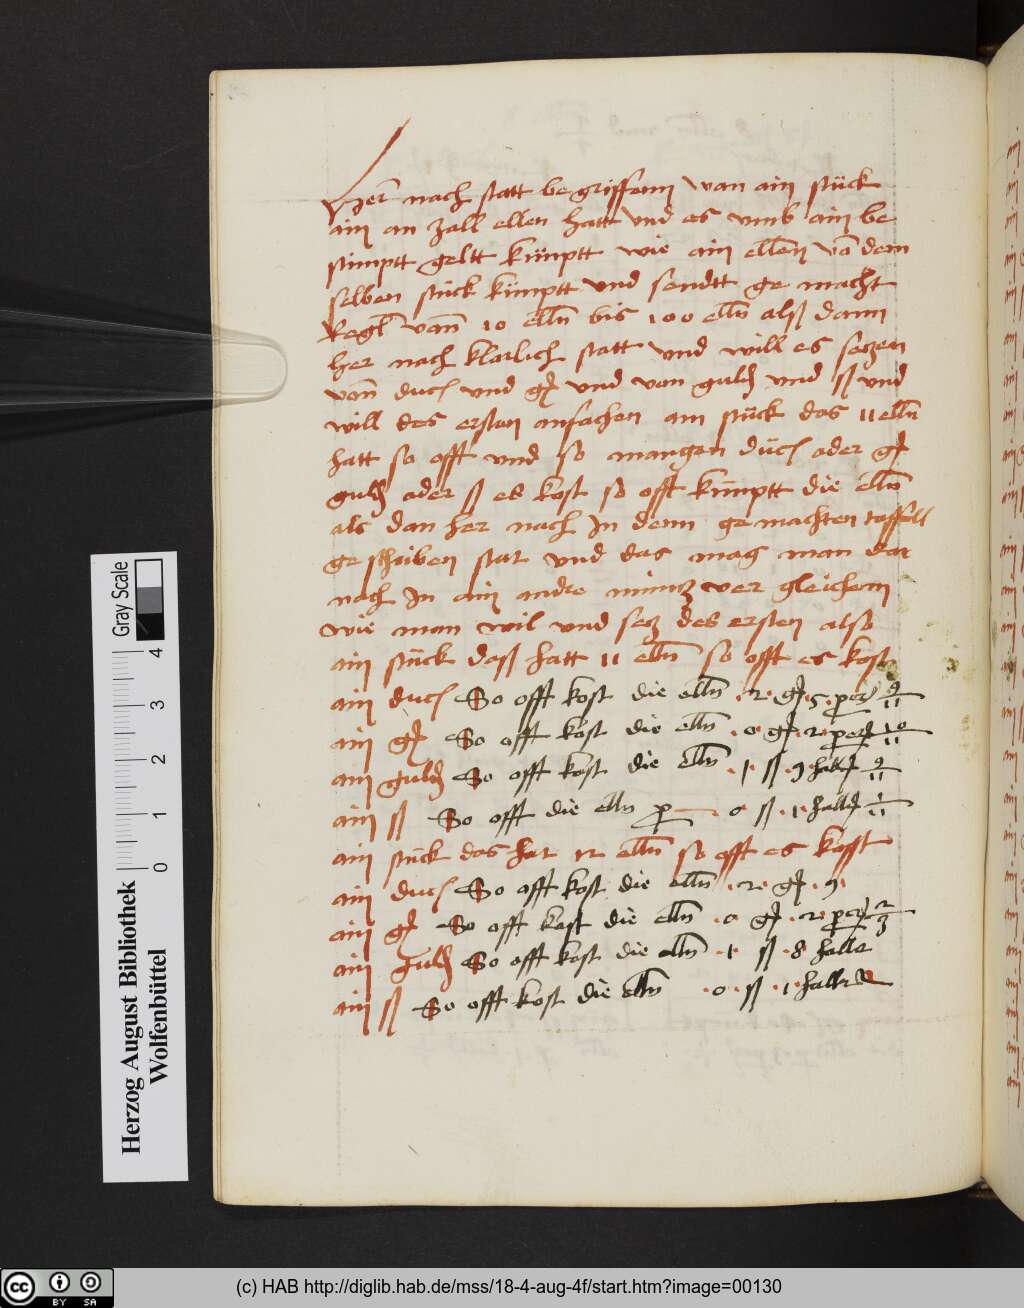 Her nach statt begriffenn wan ain stück
ain an zall ellen hatt und es umb ain be
stimptt geltt kümptt wie ain ellen vō dem
selben stück kümptt und sendtt ge macht
Regl vann 10 elln bis 100 elln alß dann
her nach klarlich statt und will es seczen
vonn duc und gͬ und von guld und ß und
will des ersten anfachen am stück das 11 elln
hatt so offt und so mangen düc oder gͬ
guld oder ß es kost so offt kümptt die elln
als dan her nach In denn ge machten taffell
geschriben stat und das mag man dar
nach In ain andre müntz ver gleichenn
wie man wil und secz des ersten also
ain stück daß hatt 11 elln so offt es kost
ain duc So offt kost die elln · 2 · gͬ · 5 · per 9/11
ain gͬ So offt kost die elln · 0 · gͬ · 2 · per 10/11
ain guld So offt kost die elln · 1 · ß · 9 hall 9/11
ain ß So offt die elln p · 0 ß · 1 · hall 1/11
ain stück das hat 12 elln so offt es kosst
ain duc So offt kost die elln · 2 · gͬ · 9 ·
ain gͬ So offt kost die elln · 0 gͬ · 2 · per 2/3
ain guld So offt kost die elln · 1 · ß · 8 hallr
ain ß So offt kost die elln · 0 · ß · 1 · hallr
Herzog August Bibliothek
Wolfenbüttel
Gray Scale
0 1 2 3 4
cc BY SA
(c) HAB http://diglib.hab.de/mss/18-4-aug-4f/start.htm?image=00130